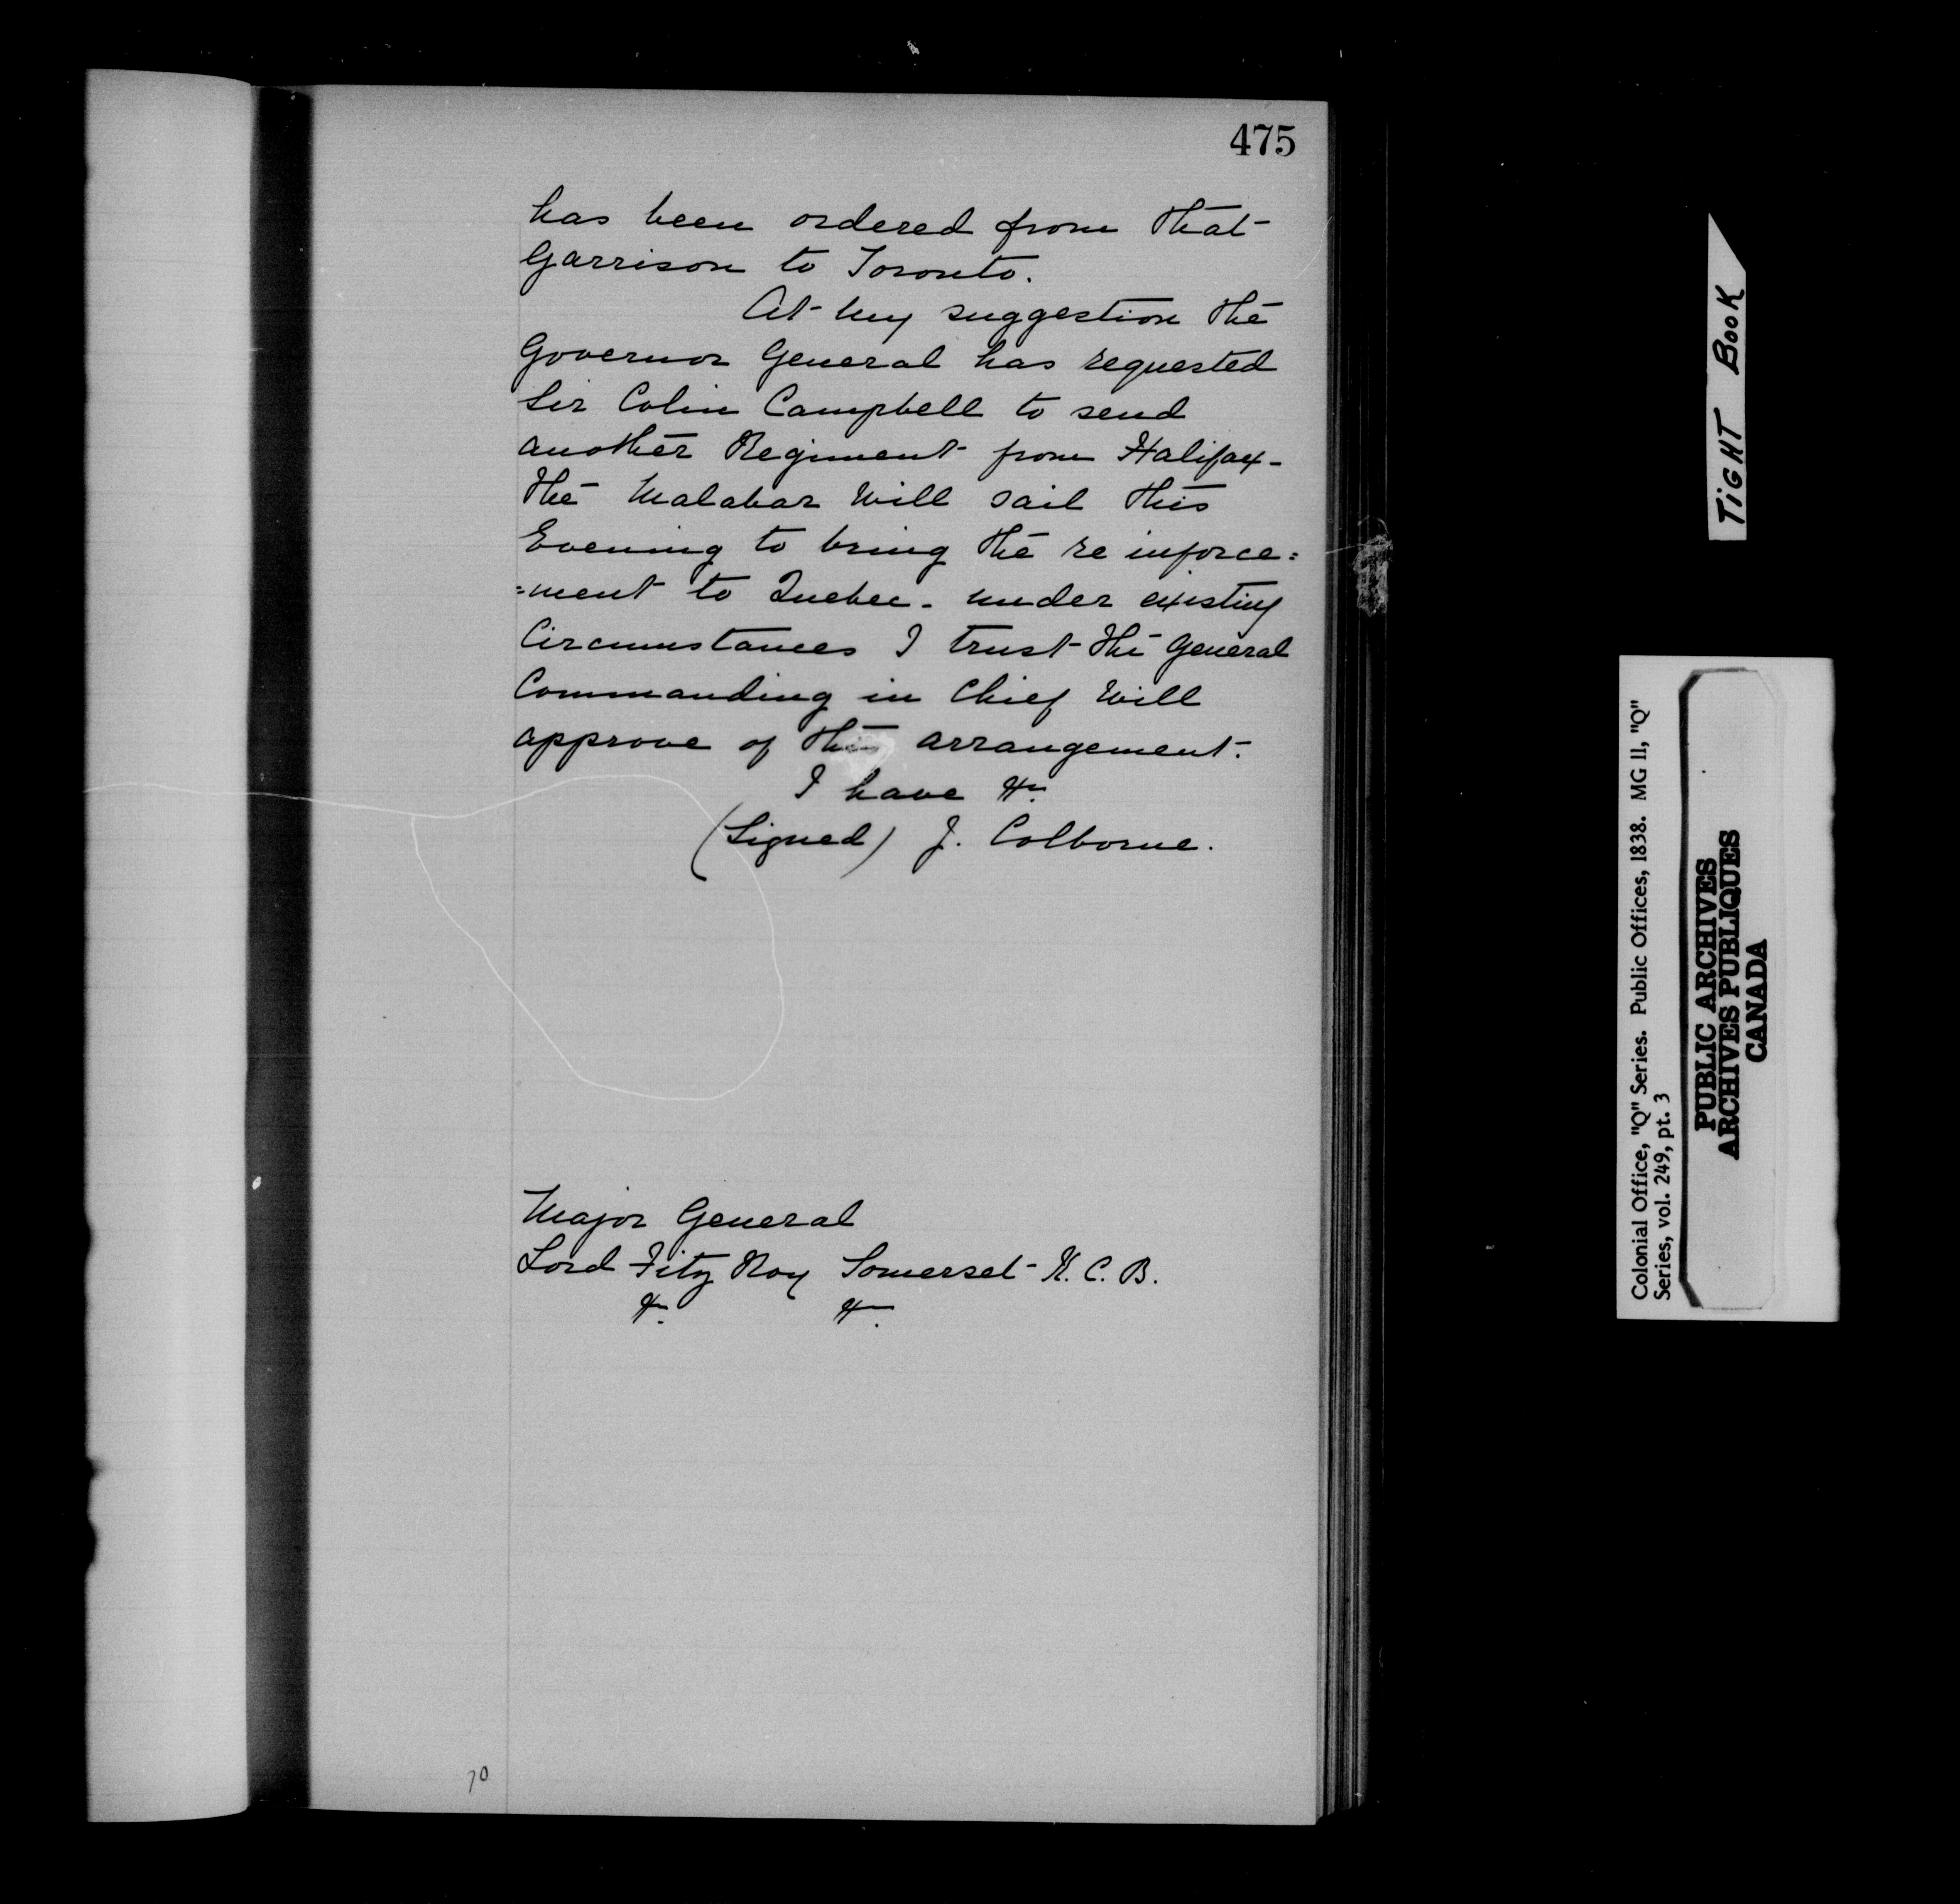 475
has been ordered from that
Garrison to Toronto.
At my suggestion the
Governor General has requested
Sir Colin Campbell to send
another Regiment from Halifax -
the Malabar will sail this
Evening to bring the re inforce=
=ment to Quebec - under existing
Circumstances I trust the General
Commanding in Chief will
approve of this arrangement.
I have &c.
(Signed) J. Colborne.
Major General
Lord Fitz Roy Somerset K. C. B.
&c. &c.
70
TIGHT BOOK
Colonial Office, "Q" Series. Public Offices, 1838. MG 11, "Q"
Series, vol. 249, pt. 3
PUBLIC ARCHIVES
ARCHIVES PUBLIQUES
CANADA